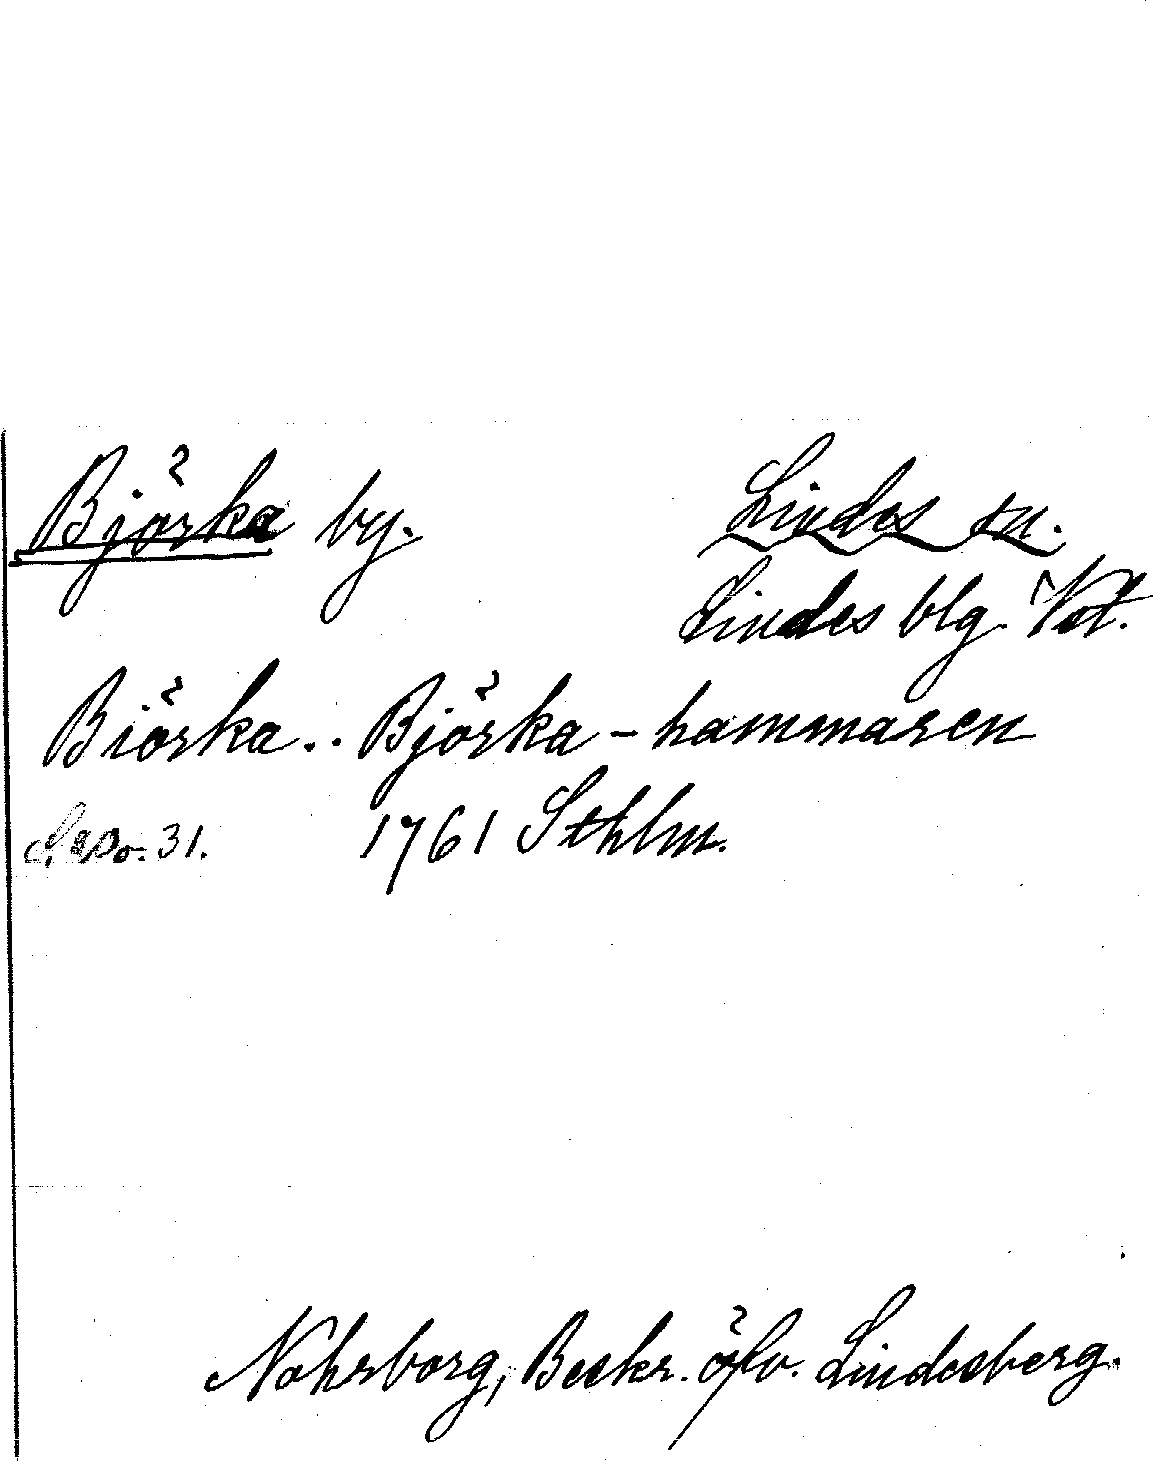 Björka by. Lindes sn.
Lindes blg. Vstm.
Biörka .. Björka-hammaren
31. 1761 Sthlm.
Nohrborg, Beskr. öfv. Lindesberg.